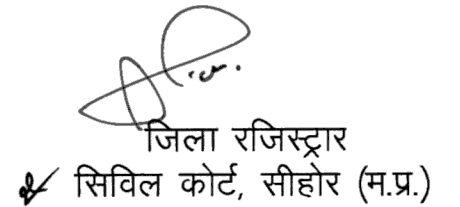 जिला रजिस्ट्रार
सिविल कोर्ट, सीहोर (म.प्र.)